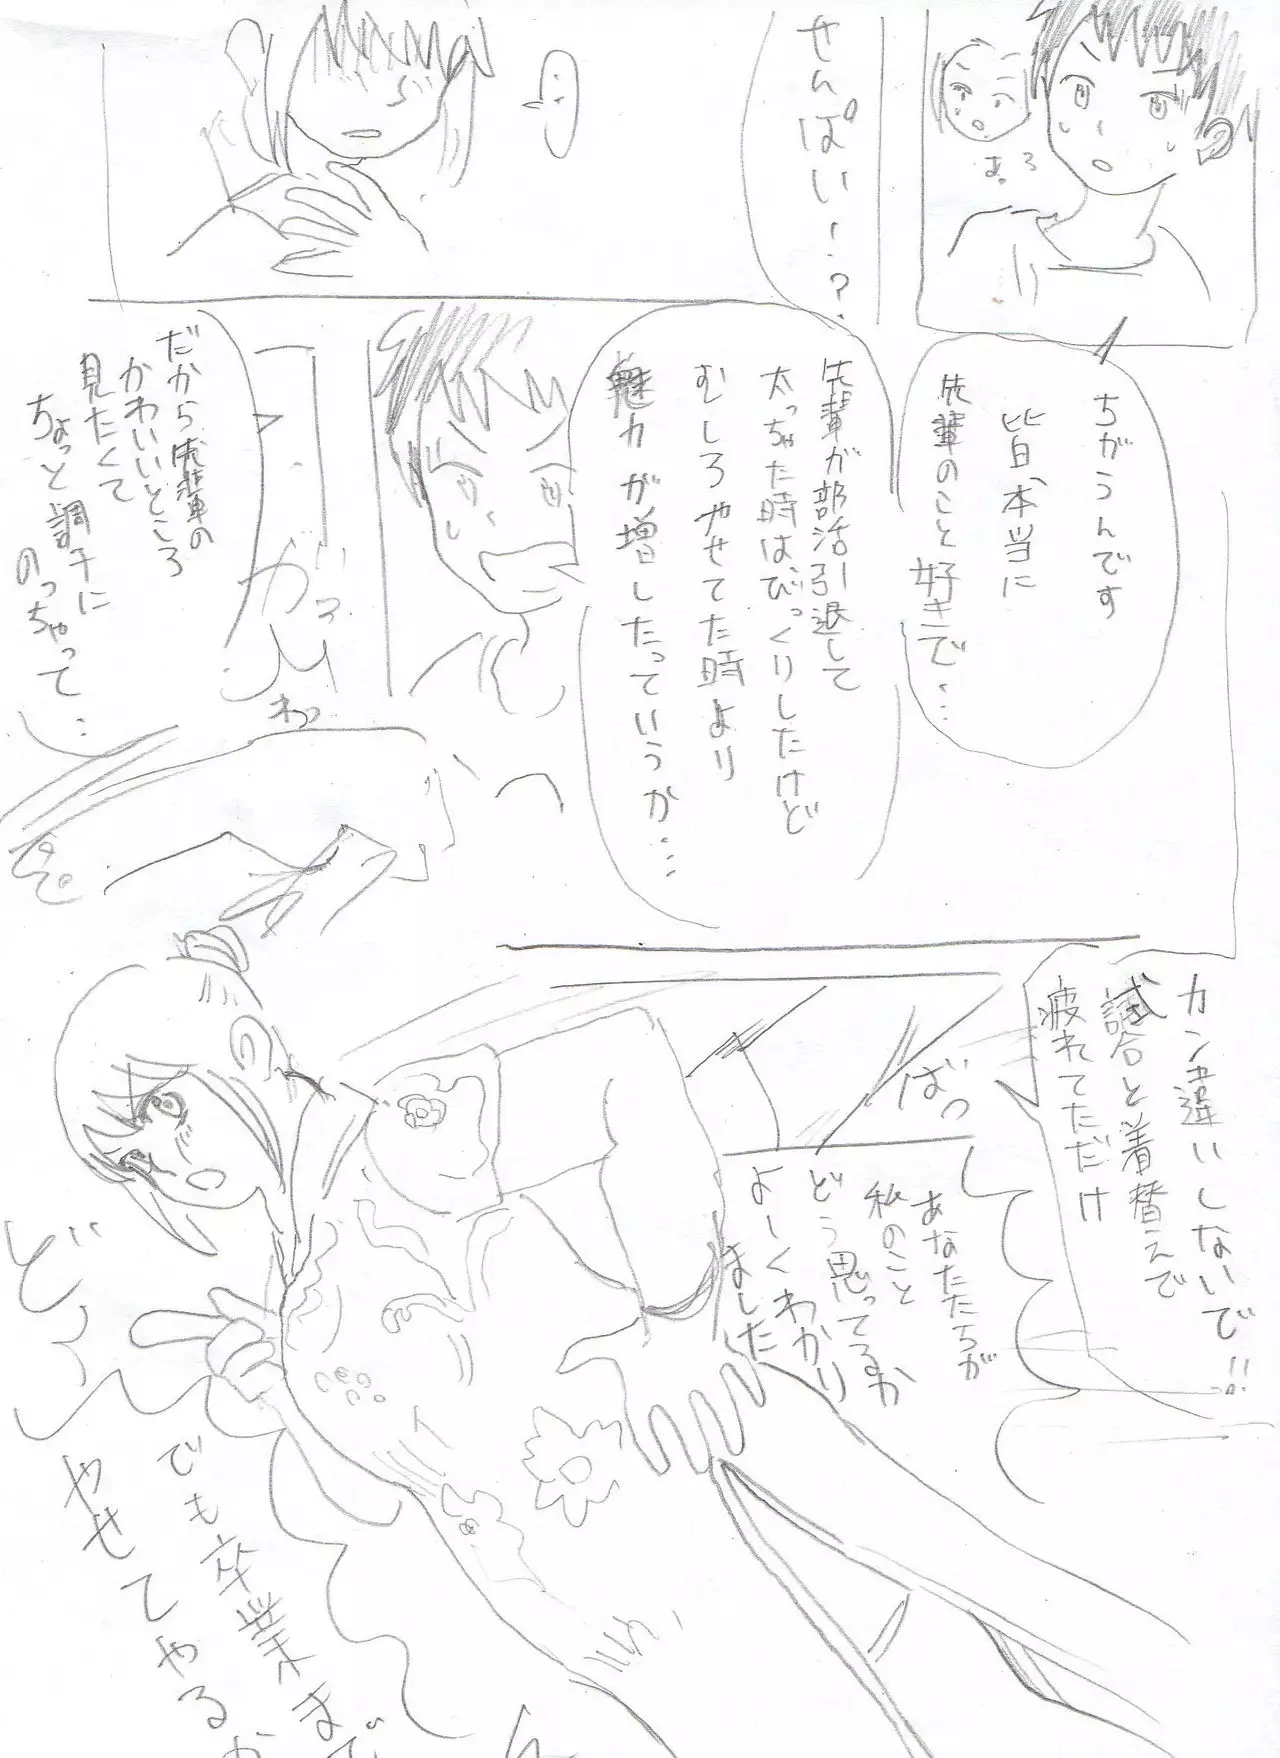 あろ
せんぱい!?
…
ちがうんです
皆、本当に
先輩のこと好きで…
先輩が部活引退して
太っちゃた時はびっくりしたけど
むしろやせてた時より
魅力が増したっていうか…
だから先輩の
かわいいところ
見たくて
ちょっと調子に
のっちゃって…
ガッ
わっ
カン違いしないで!!
試合と着替えで
疲れてただけ
ばっ
あなたたちが
私のこと
どう思ってるか
よーくわかり
ました
どーん
でも卒業まで
やせてやるか